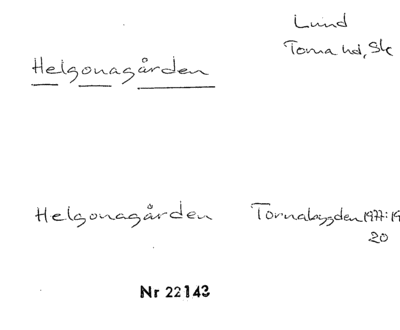 Lund
Torna hd, Sk
Helgonagården
Helgonagården
Tornabygden 1977:19
20
Nr 22143